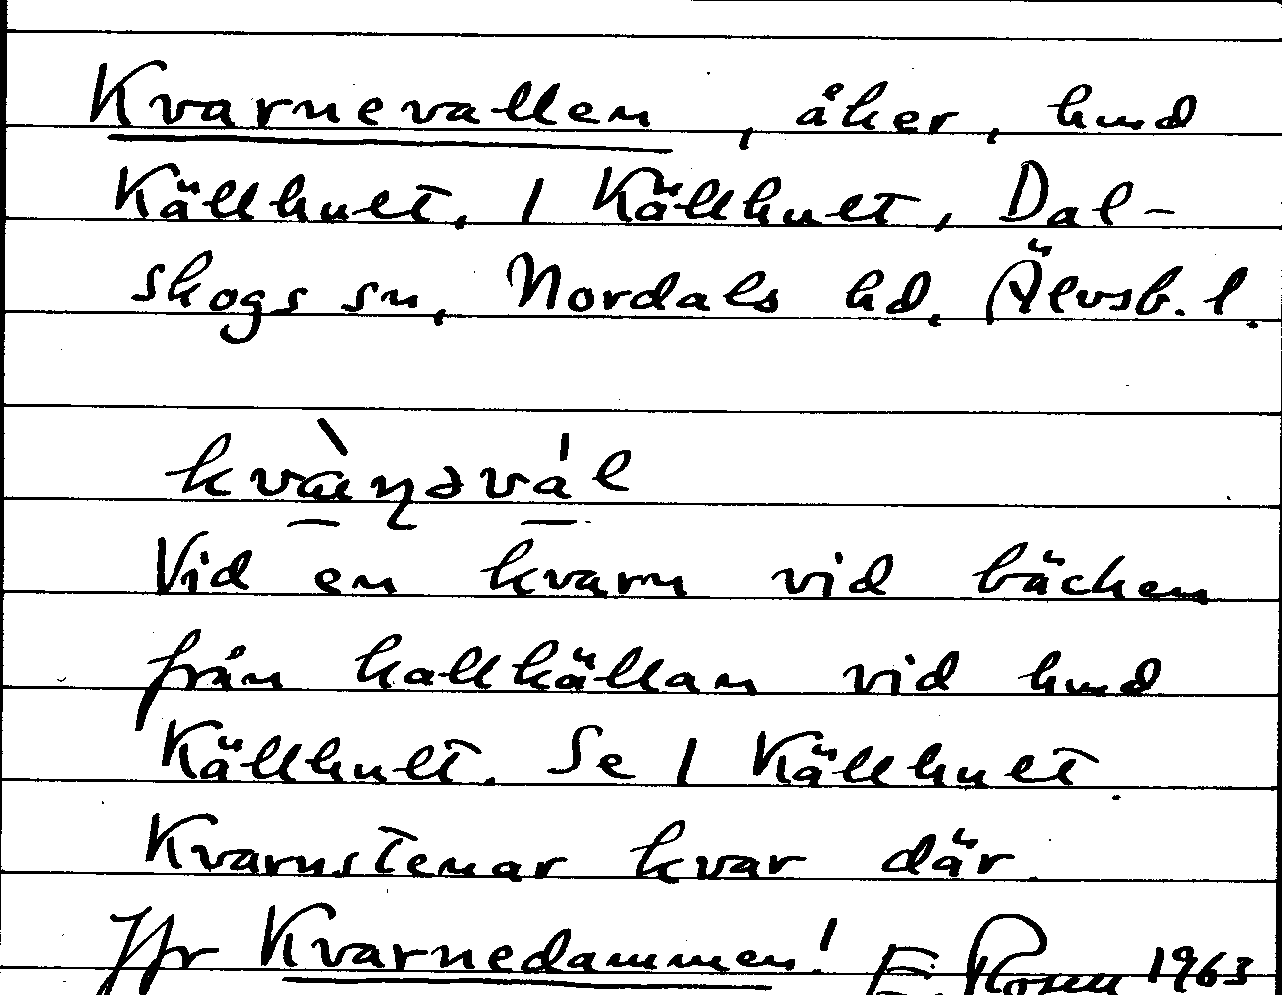 Kvarnevallen, åker, hmd
Källhult, 1 Källhult, Dal-
skogs sn, Nordals hd, Älvsb. l.
Vid en kvarn vid bäcken
från kallkällan vid hmd
Källhult. Se 1 Källhult.
Kvarnstenar kvar där.
Jfr Kvarnedammen! E. Rosén 1963